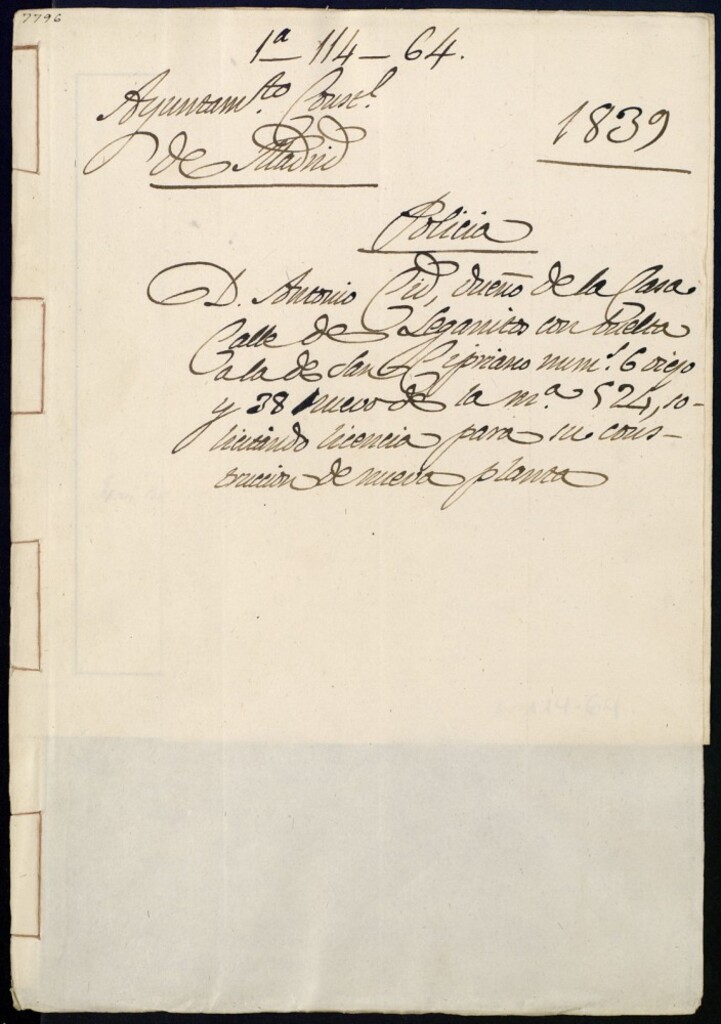 7796
1ª 114-64.
Ayuntam.to Const.l
de Madrid
1839
Policia
D. Antonio Cid, dueño de la Casa
Calle de Leganitos con buelta
a la de San Cipriano num.º 6 viejo
y 38 nuevo de la m.ª 524, so-
licitando licencia para su cons-
truccion de nueva planta